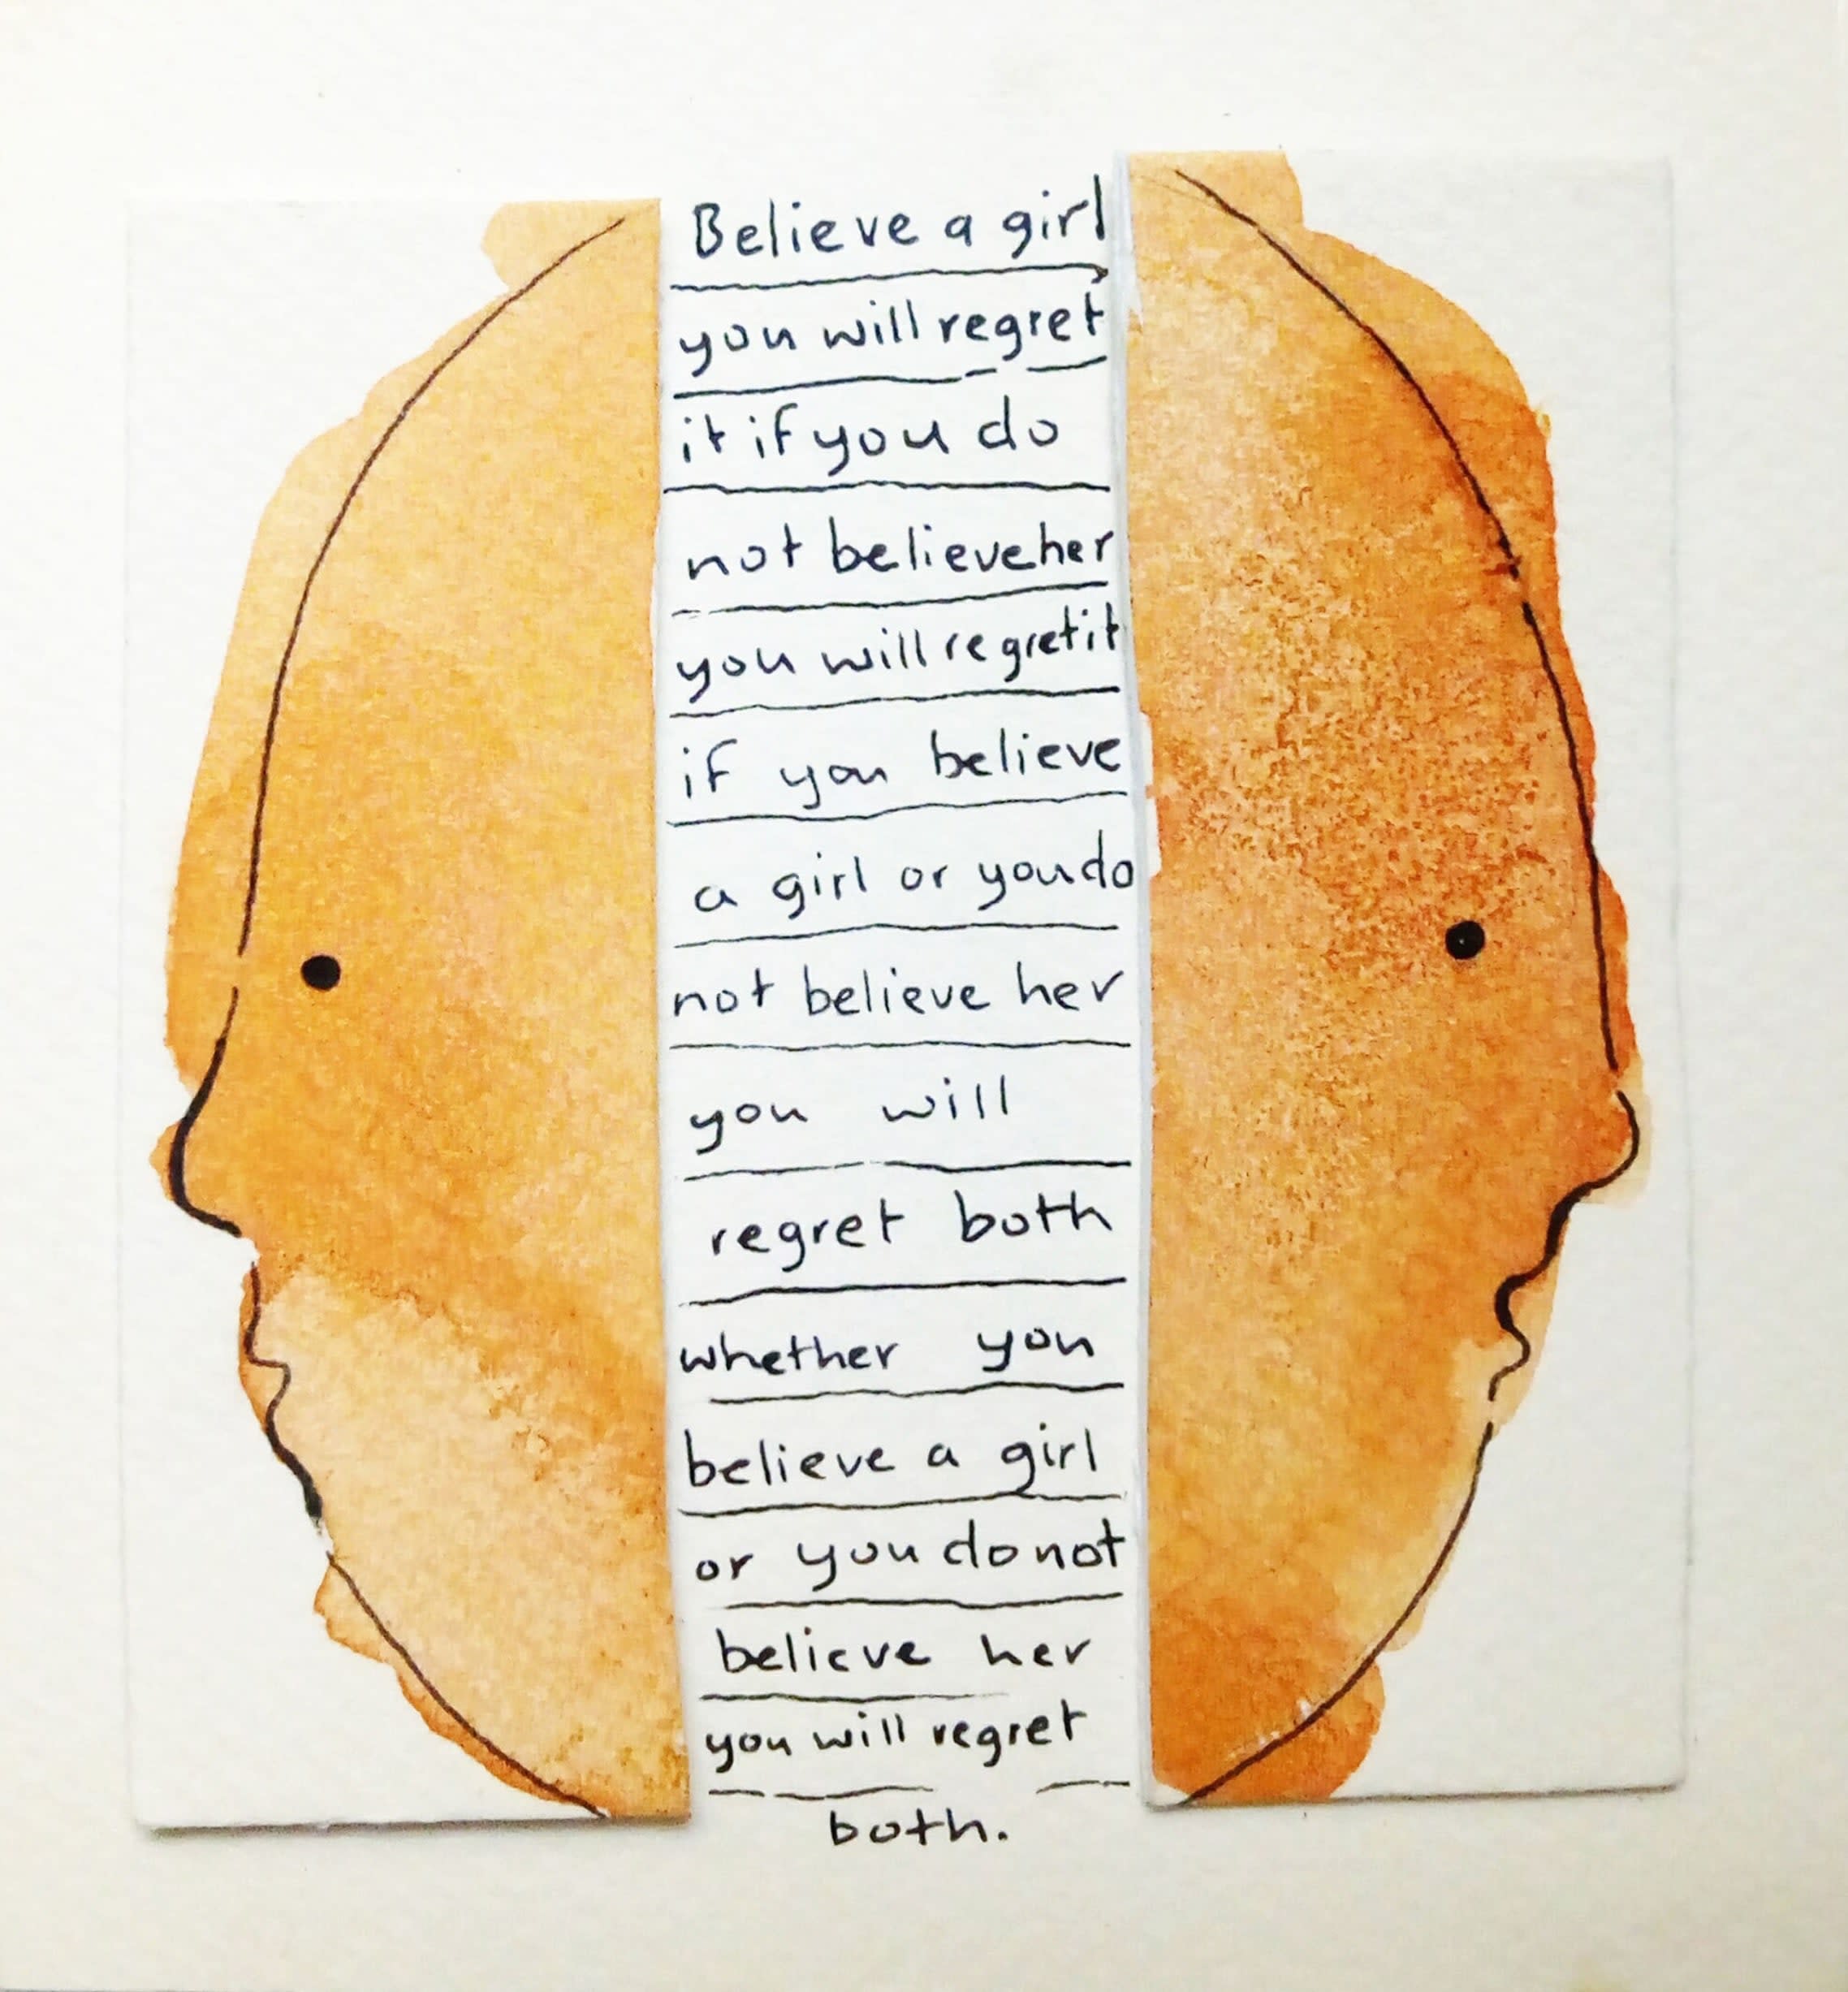 Believe a girl
you will regret
it if you do
not believe her
you will regret it
if you believe
a girl or you do
not believe her
you will
regret both
whether you
believe a girl
or you do not
believe her
you will regret
both.